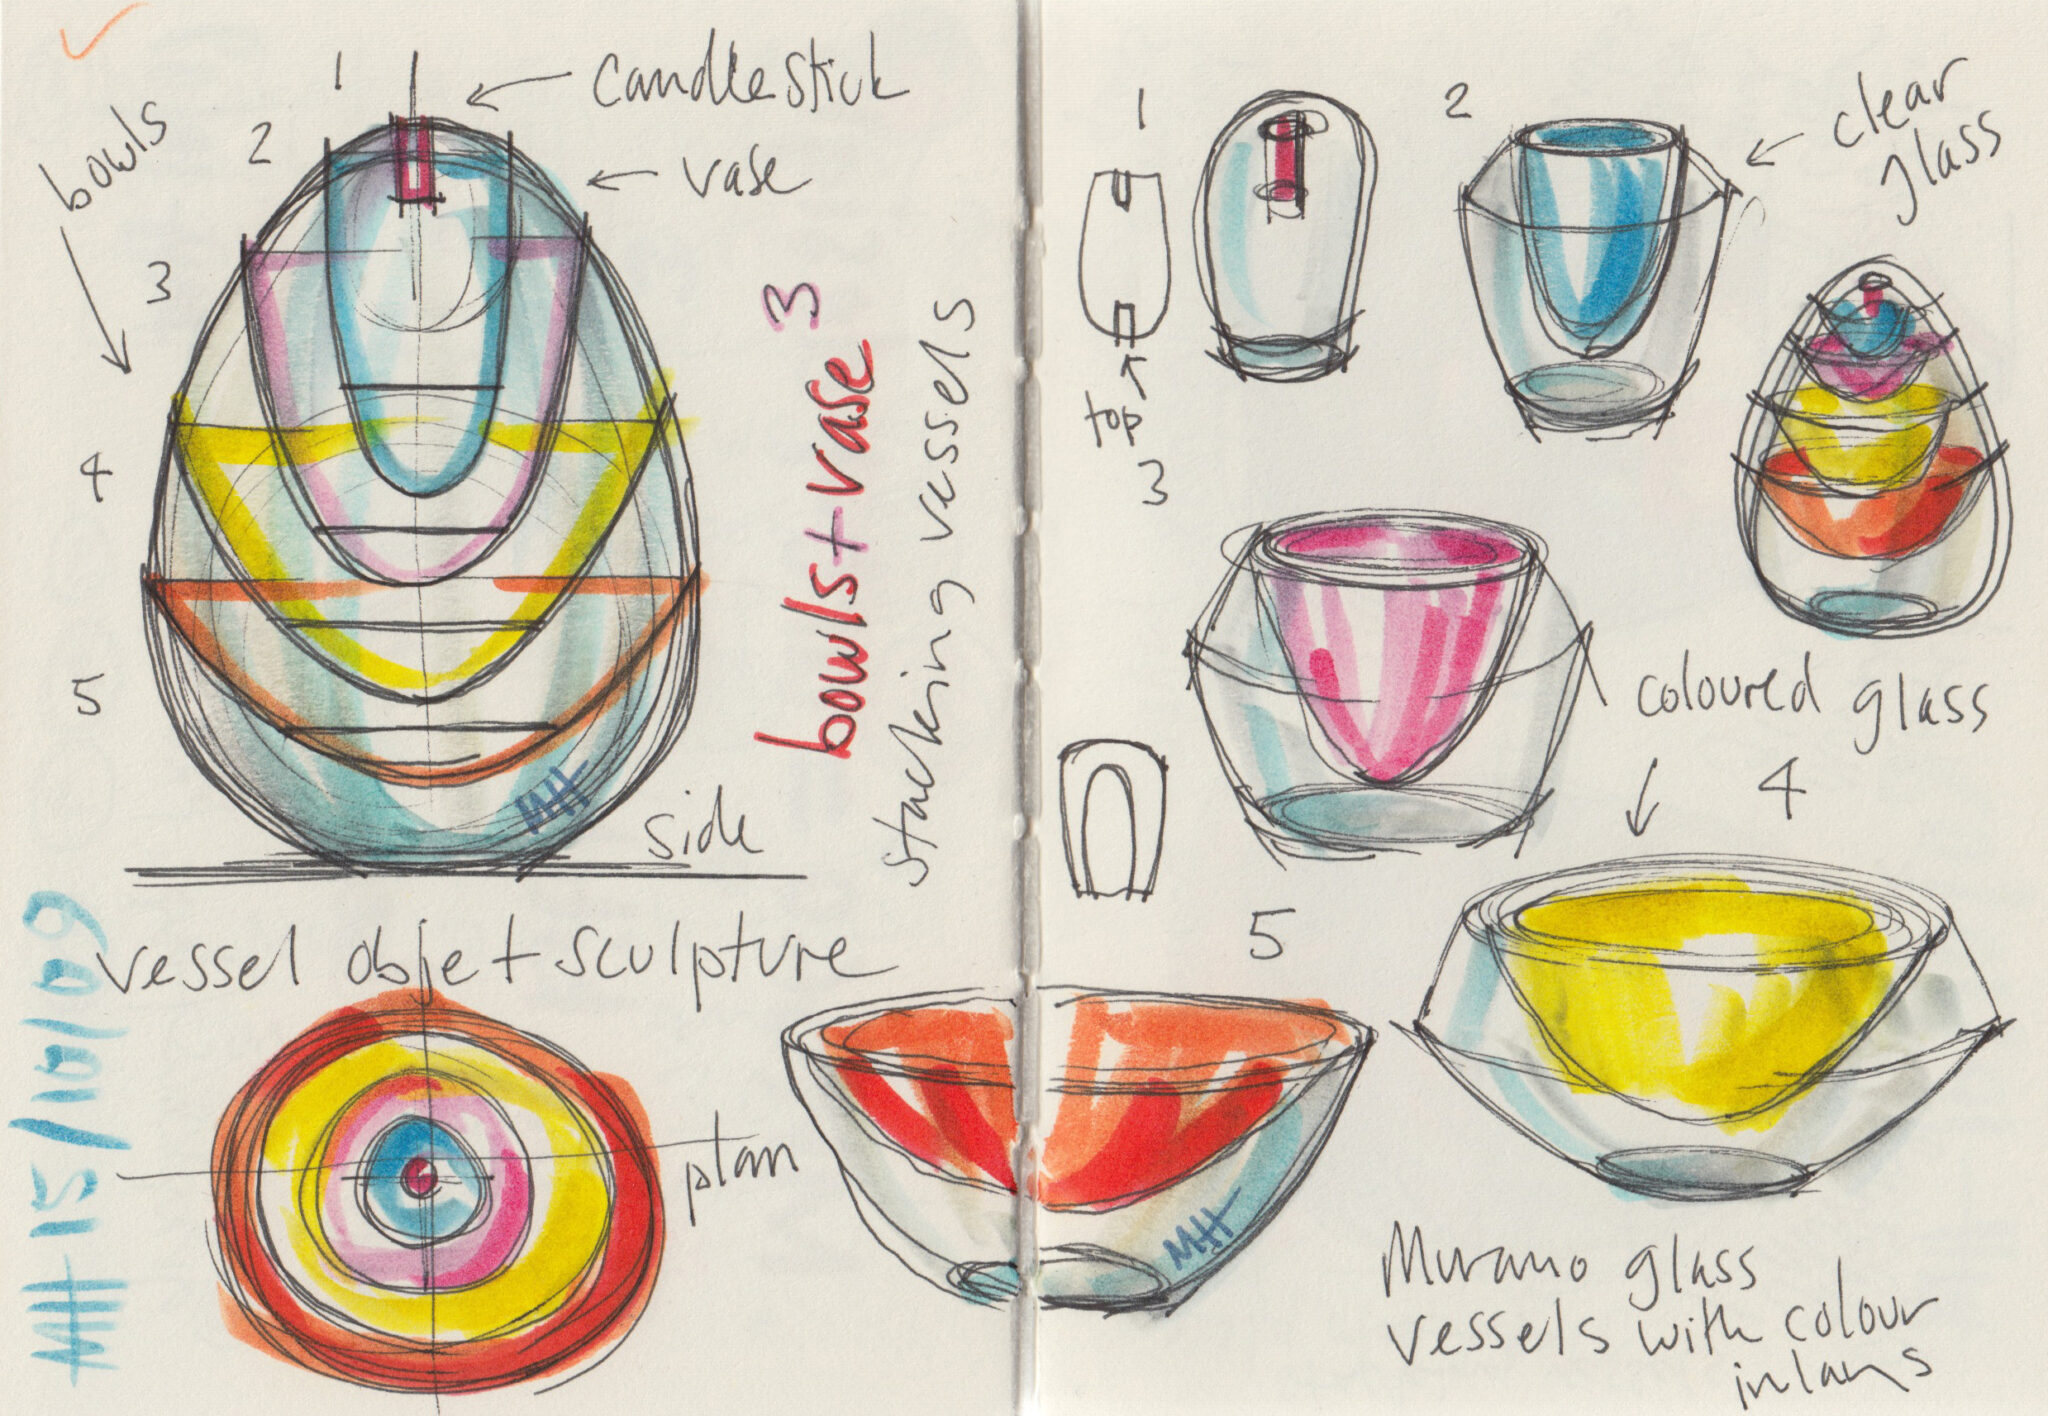 1
candlestick
2
vase
bowls
3
4
5
MH
side
bowls + vase 3
stacking vessels
vessel objet sculpture
plan
MH 15/10/09
1
2
clear
glass
top
3
coloured glass
4
5
MH
Murano glass
vessels with colour
inlays